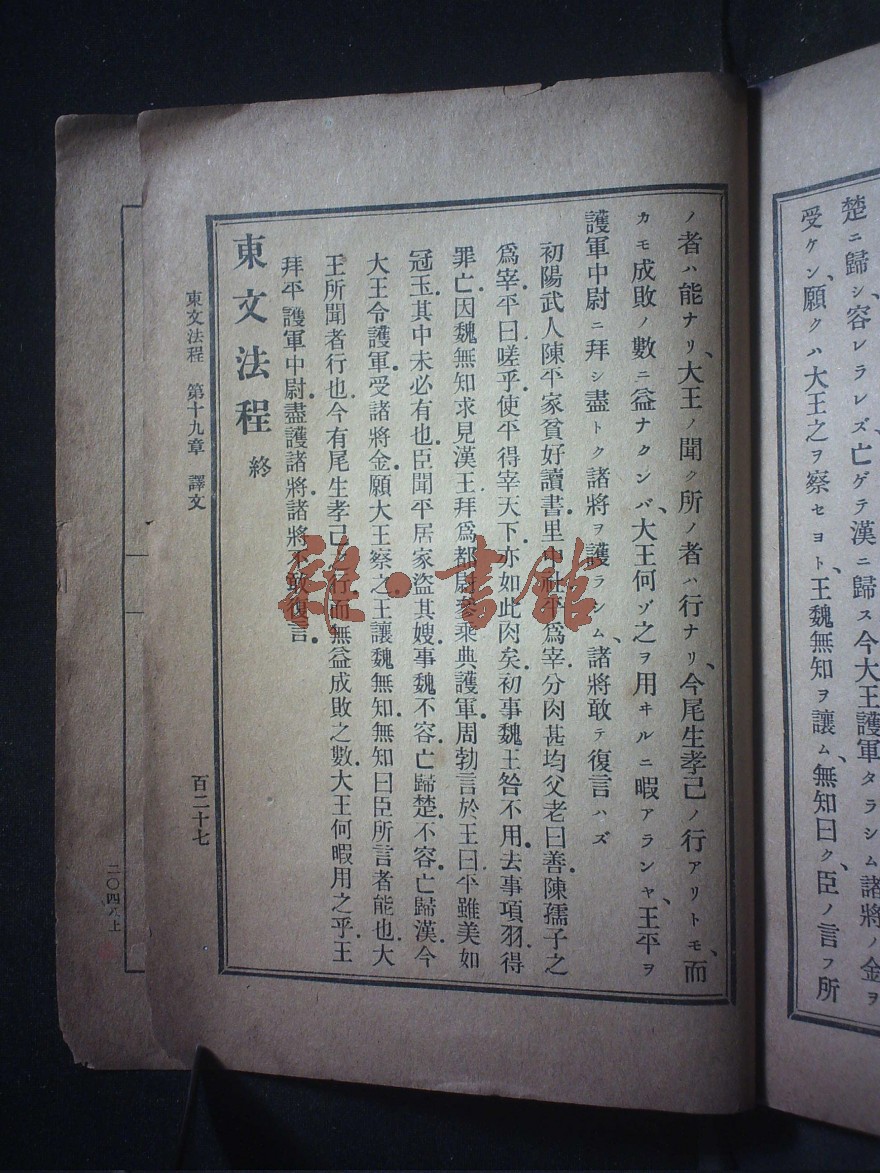 楚ニ歸シ、容レラレズ、亡ゲテ漢ニ歸ス今大王護軍タラシム諸將ノ金ヲ
受ケン、願クハ大王之ヲ察セヨト、王魏無知ヲ讓ム、無知曰ク臣ノ言フ所
ノ者ハ能ナリ、大王ノ聞ク所ノ者ハ行ナリ、今尾生孝己ノ行アリトモ、而
カモ成敗ノ數ニ益ナクンバ、大王何ゾ之ヲ用ヰルニ暇アランヤ、王平ヲ
護軍中尉ニ拜シ盡トク諸將ヲ護ラシム、諸將敢テ復言ハズ
初陽武人陳平家貧好讀書。里中社平爲宰分肉甚均父老曰善。陳孺子之
爲宰。平曰嗟乎。使平得宰天下。亦如此肉矣。初事魏王咎不用。去事項羽。得
罪亡。因魏無知求見漢王。拜爲都尉參乘典護軍。周勃言於王曰平雖美如
冠玉。其中未必有也。臣聞平居家盜其嫂。事魏不容。亡歸楚。不容。亡歸漢。今
大王令護軍。受諸將金。願大王察之。王讓魏無知。無知曰臣所言者能也。大
王所聞者行也。今有尾生孝己之行。而無益成敗之數。大王何暇用之乎。王
拜平護軍中尉。盡護諸將。諸將不敢復言。
東文法程 終
東文法程 第十九章 譯文
百二十七
雜・書館